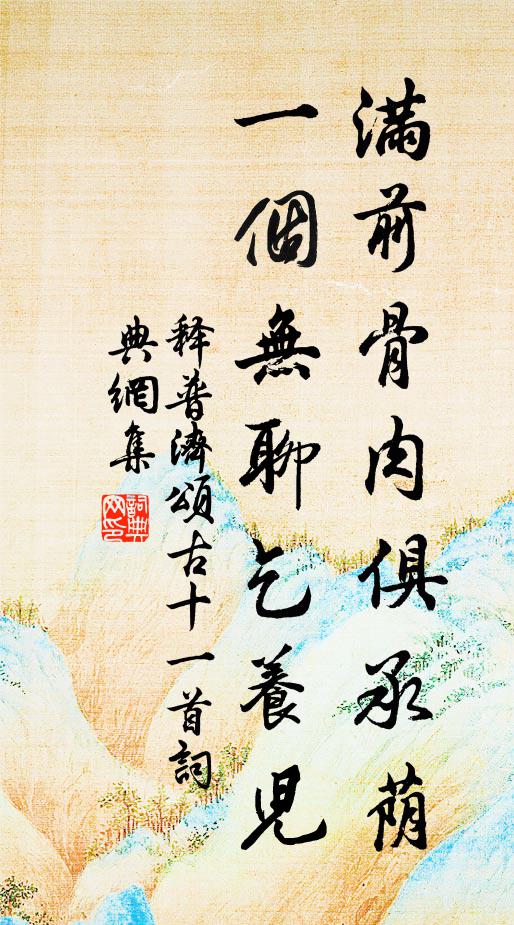 滿前骨肉俱承蔭
一個無聊乞養兒
释普濟頌古十一首詞
典網集
詞典網印